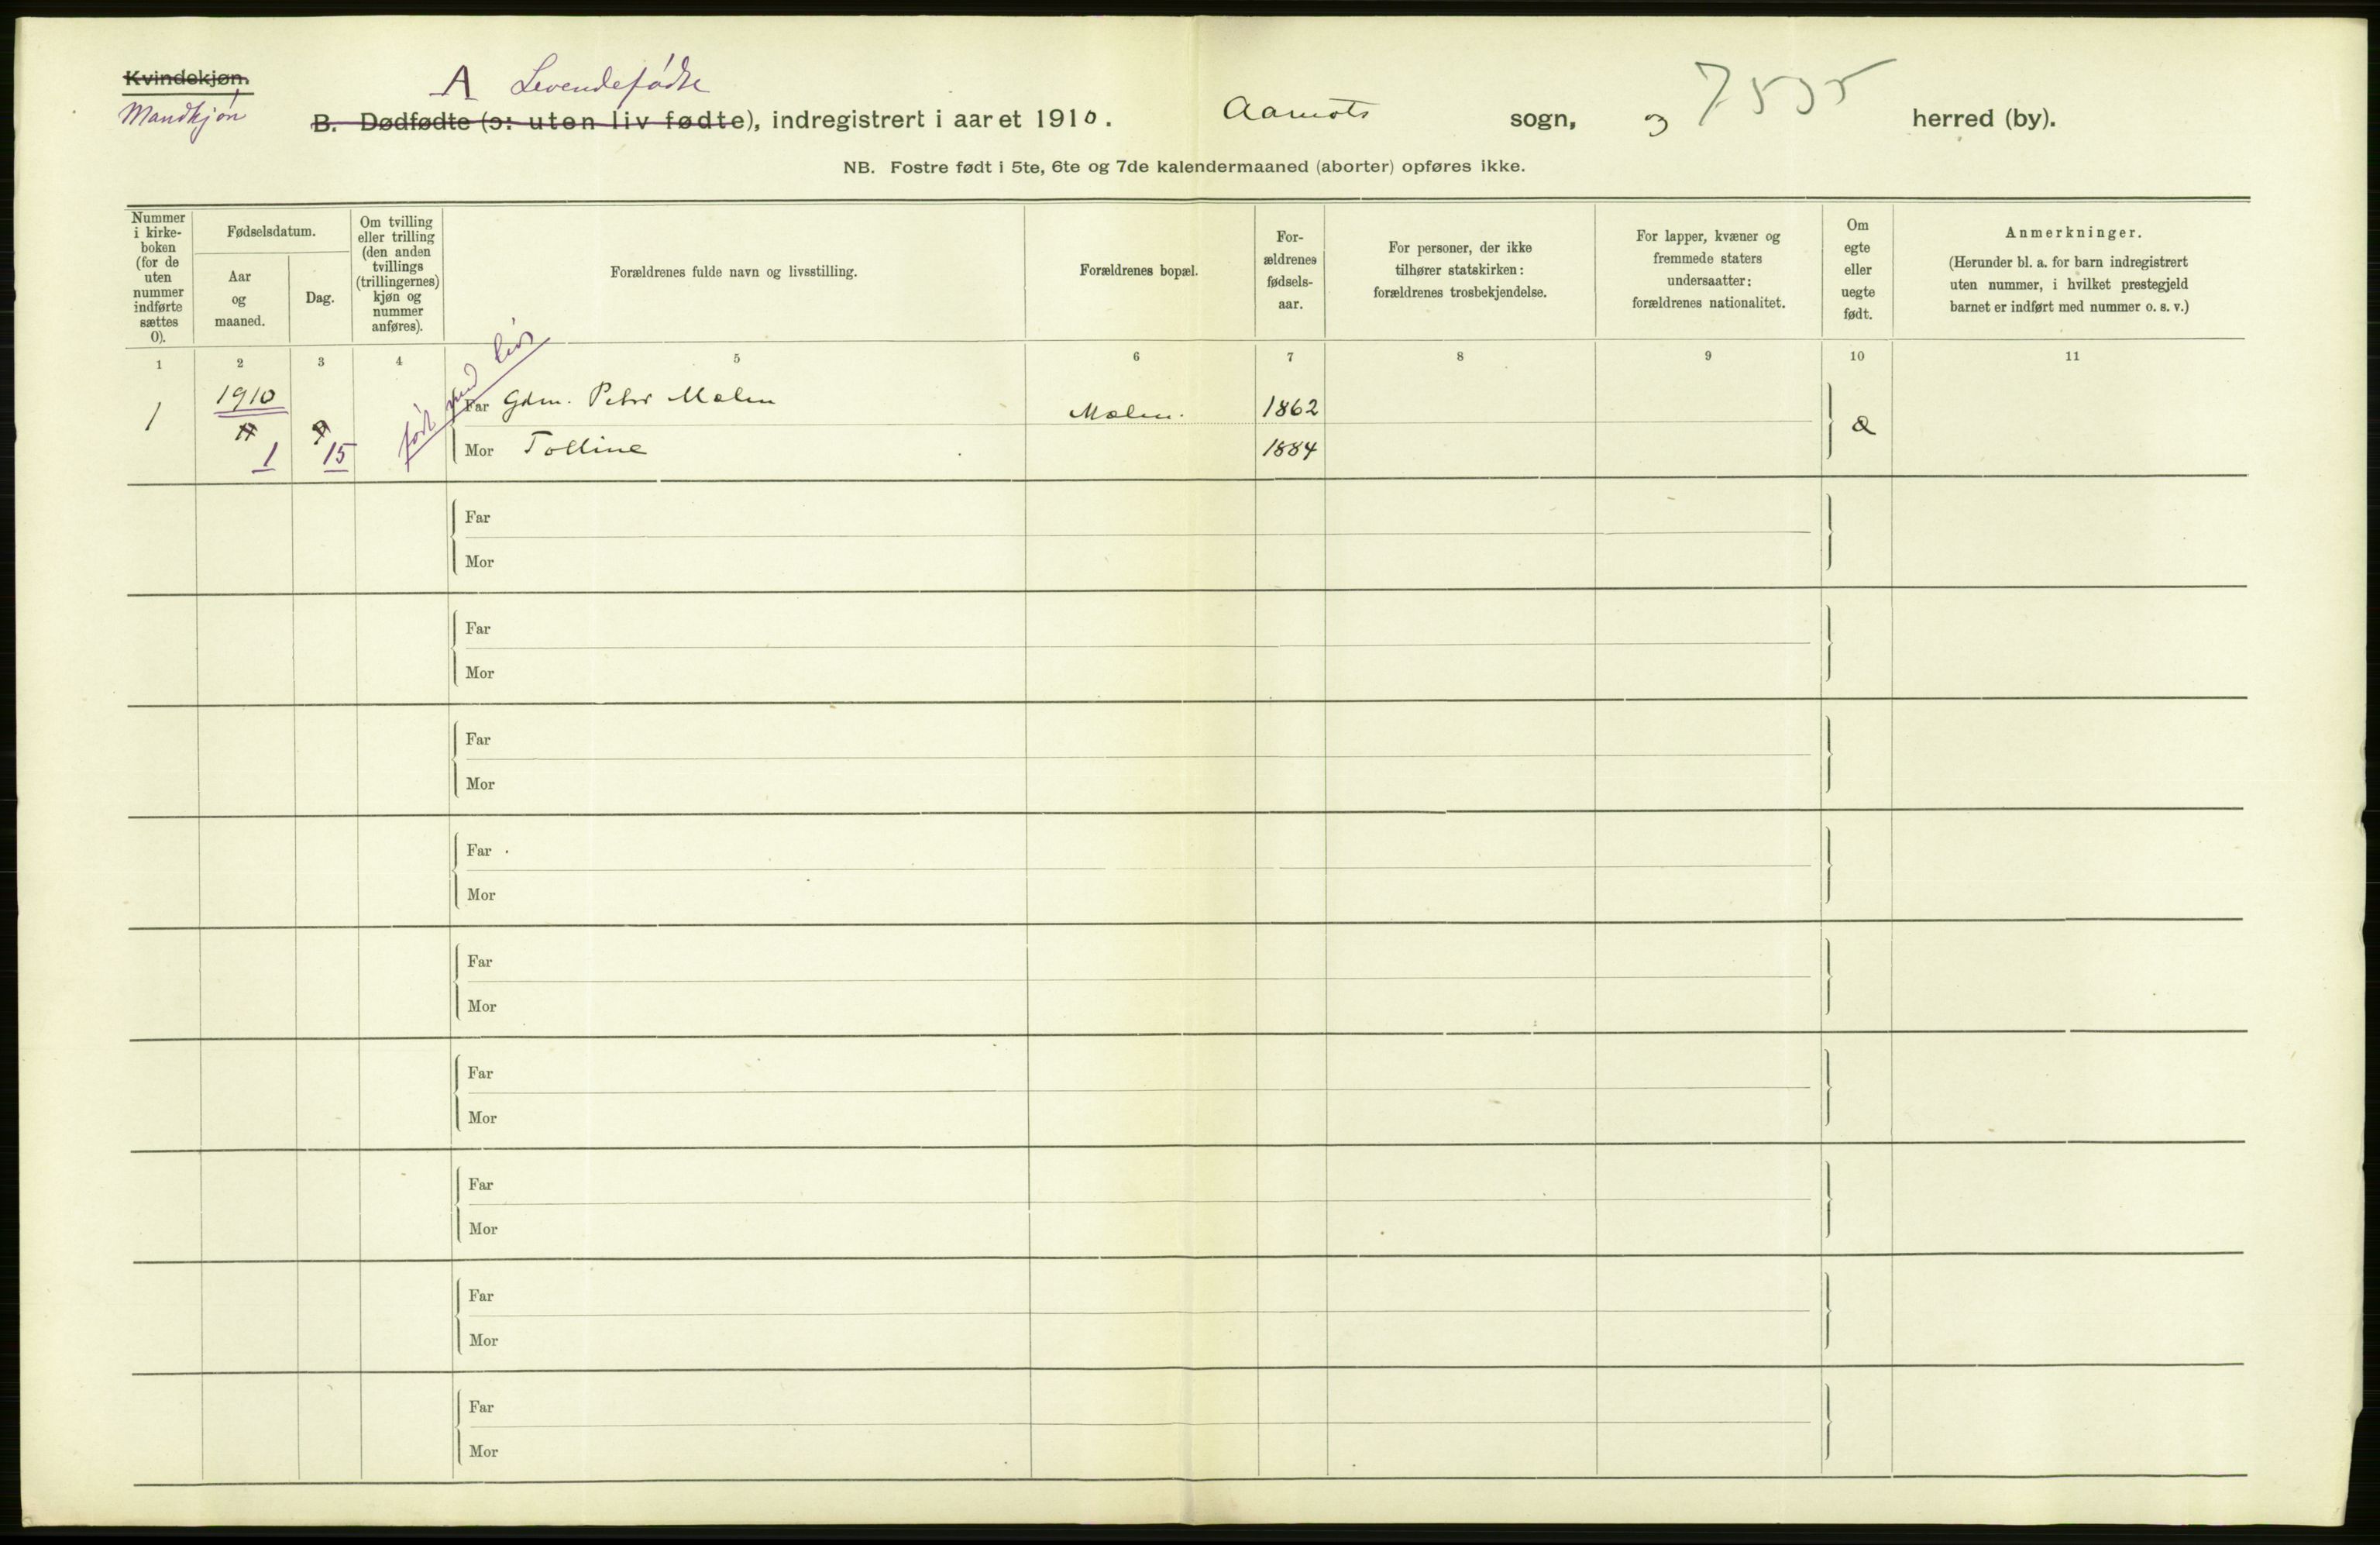 Kvindekjøn.
Mandkjøn
A Levendefødte
B. Dødfødte (ɔ: uten liv fødte), indregistrert i aaret 1910. Aamots sogn, og herred (by).
7535
NB. Fostre født i 5te, 6te og 7de kalendermaaned (aborter) opføres ikke.
Nummer
i kirke-
boken
(for de
uten
nummer
indførte
sættes
0).
Fødselsdatum.
Aar
og
maaned.
Dag.
Om tvilling
eller trilling
(den anden
tvillings
(trillingernes)
kjøn og
nummer
anføres).
Forældrenes fulde navn og livsstilling.
Forældrenes bopæl.
For-
ældrenes
fødsels-
aar.
For personer, der ikke
tilhører statskirken:
forældrenes trosbekjendelse.
For lapper, kvæner og
fremmede staters
undersaatter:
forældrenes nationalitet.
Om
egte
eller
uegte
født.
Anmerkninger.
(Herunder bl. a. for barn indregistrert
uten nummer, i hvilket prestegjeld
barnet er indført med nummer o. s. v.)
1 2 3 4 5 6 7 8 9 10 11
født med liv
1 1910 Far Gdm. Peder Malen Malen. 1862
1 15 Mor Tolline 1884
Far
Mor
Far
Mor
Far
Mor
Far
Mor
Far
Mor
Far
Mor
Far
Mor
Far
Mor
Far
Mor